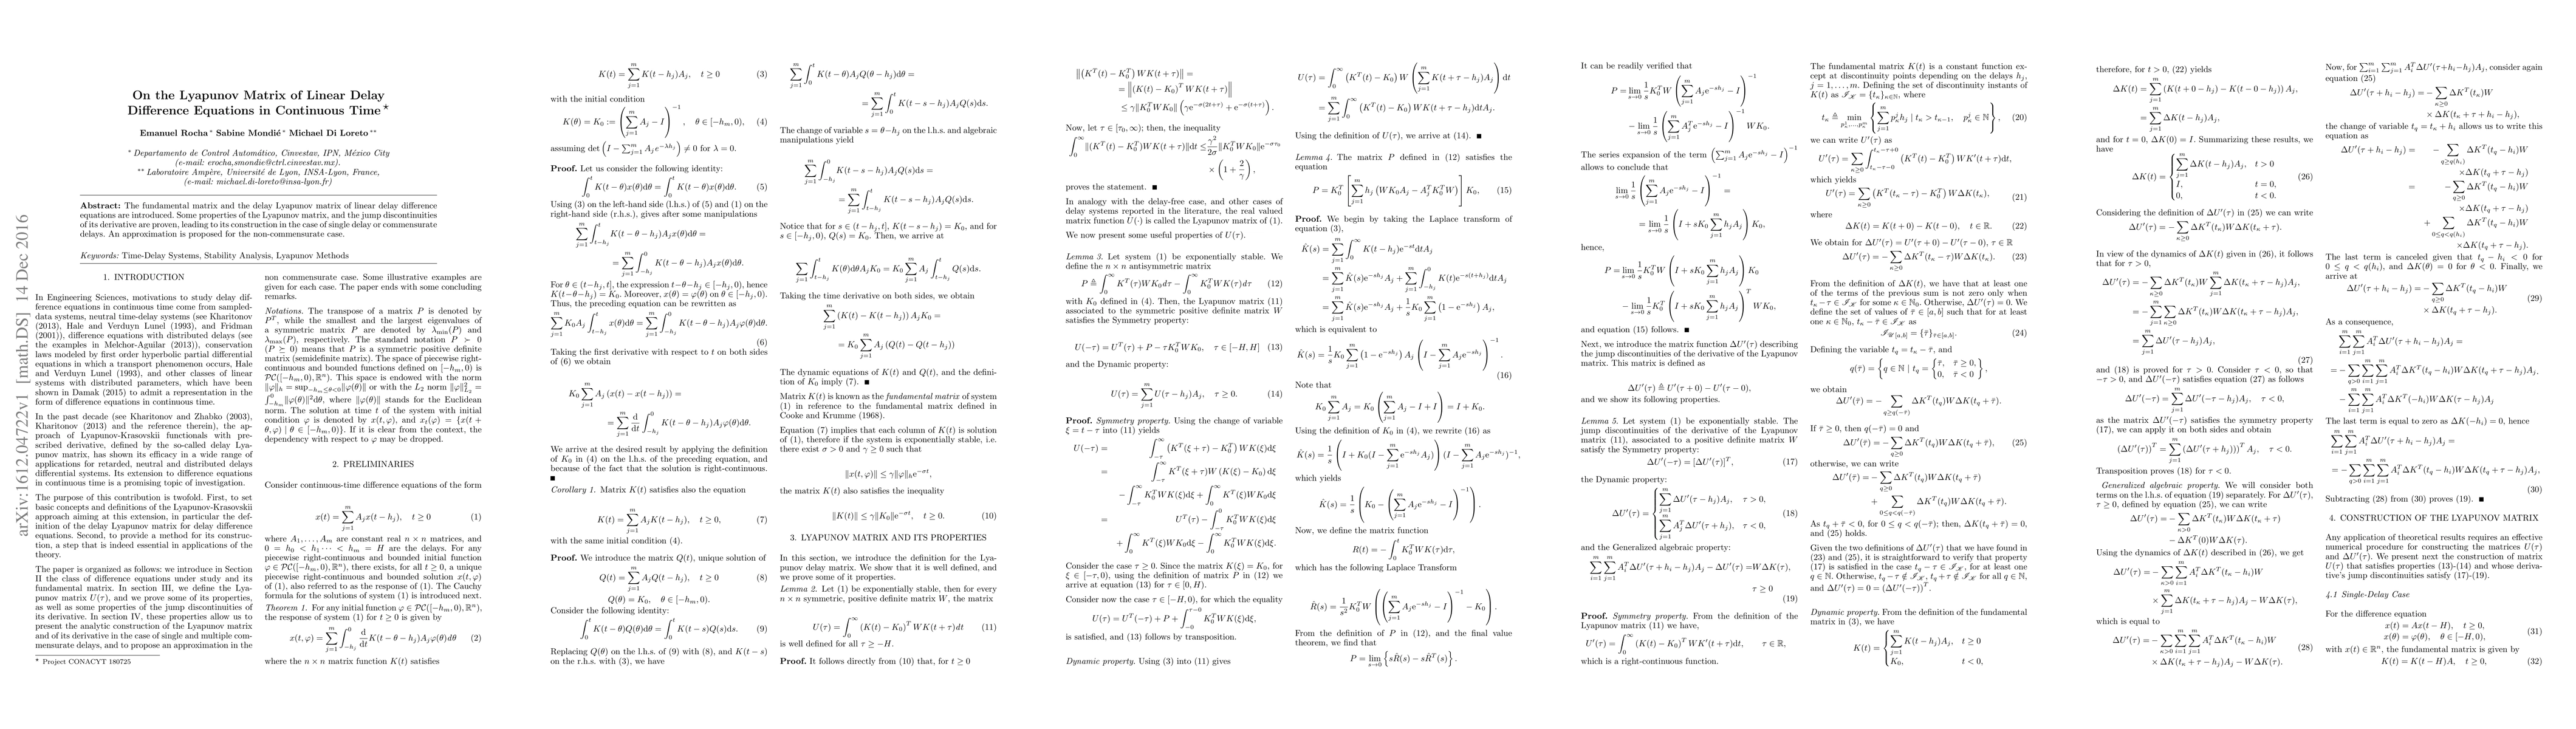 On the Lyapunov Matrix of Linear Delay
Difference Equations in Continuous Time ⋆
Emanuel Rocha * Sabine Mondié * Michael Di Loreto **
* Departamento de Control Automático, Cinvestav, IPN, México City
(e-mail: erocha,smondie@ctrl.cinvestav.mx).
** Laboratoire Ampère, Université de Lyon, INSA-Lyon, France,
(e-mail: michael.di-loreto@insa-lyon.fr)
Abstract: The fundamental matrix and the delay Lyapunov matrix of linear delay difference
equations are introduced. Some properties of the Lyapunov matrix, and the jump discontinuities
of its derivative are proven, leading to its construction in the case of single delay or commensurate
delays. An approximation is proposed for the non-commensurate case.
Keywords: Time-Delay Systems, Stability Analysis, Lyapunov Methods
arXiv:1612.04722v1 [math.DS] 14 Dec 2016
1. INTRODUCTION
In Engineering Sciences, motivations to study delay dif-
ference equations in continuous time come from sampled-
data systems, neutral time-delay systems (see Kharitonov
(2013), Hale and Verduyn Lunel (1993), and Fridman
(2001)), difference equations with distributed delays (see
the examples in Melchor-Aguilar (2013)), conservation
laws modeled by first order hyperbolic partial differential
equations in which a transport phenomenon occurs, Hale
and Verduyn Lunel (1993), and other classes of linear
systems with distributed parameters, which have been
shown in Damak (2015) to admit a representation in the
form of difference equations in continuous time.
In the past decade (see Kharitonov and Zhabko (2003),
Kharitonov (2013) and the reference therein), the ap-
proach of Lyapunov-Krasovskii functionals with pre-
scribed derivative, defined by the so-called delay Lya-
punov matrix, has shown its efficacy in a wide range of
applications for retarded, neutral and distributed delays
differential systems. Its extension to difference equations
in continuous time is a promising topic of investigation.
The purpose of this contribution is twofold. First, to set
basic concepts and definitions of the Lyapunov-Krasovskii
approach aiming at this extension, in particular the def-
inition of the delay Lyapunov matrix for delay difference
equations. Second, to provide a method for its construc-
tion, a step that is indeed essential in applications of the
theory.
The paper is organized as follows: we introduce in Section
II the class of difference equations under study and its
fundamental matrix. In section III, we define the Lya-
punov matrix U(τ), and we prove some of its properties,
as well as some properties of the jump discontinuities of
its derivative. In section IV, these properties allow us to
present the analytic construction of the Lyapunov matrix
and of its derivative in the case of single and multiple com-
mensurate delays, and to propose an approximation in the
⋆ Project CONACYT 180725
non commensurate case. Some illustrative examples are
given for each case. The paper ends with some concluding
remarks.
Notations. The transpose of a matrix P is denoted by
P^T, while the smallest and the largest eigenvalues of
a symmetric matrix P are denoted by λ_min(P) and
λ_max(P), respectively. The standard notation P ≻ 0
(P ⪰ 0) means that P is a symmetric positive definite
matrix (semidefinite matrix). The space of piecewise right-
continuous and bounded functions defined on [−h_m, 0) is
PC([−h_m, 0), R^n). This space is endowed with the norm
‖φ‖_h = sup_{−h_m≤θ<0} ‖φ(θ)‖ or with the L_2 norm ‖φ‖²_{L_2} =
∫_{−h_m}^0 ‖φ(θ)‖² dθ, where ‖φ(θ)‖ stands for the Euclidean
norm. The solution at time t of the system with initial
condition φ is denoted by x(t, φ), and x_t(φ) = {x(t +
θ, φ) | θ ∈ [−h_m, 0)}. If it is clear from the context, the
dependency with respect to φ may be dropped.
2. PRELIMINARIES
Consider continuous-time difference equations of the form
x(t) = ∑_{j=1}^m A_j x(t − h_j), t ≥ 0 (1)
where A_1, . . . , A_m are constant real n × n matrices, and
0 = h_0 < h_1 · · · < h_m = H are the delays. For any
piecewise right-continuous and bounded initial function
φ ∈ PC([−h_m, 0), R^n), there exists, for all t ≥ 0, a unique
piecewise right-continuous and bounded solution x(t, φ)
of (1), also referred to as the response of (1). The Cauchy
formula for the solutions of system (1) is introduced next.
Theorem 1. For any initial function φ ∈ PC([−h_m, 0), R^n),
the response of system (1) for t ≥ 0 is given by
x(t, φ) = ∑_{j=1}^m ∫_{−h_j}^0 d/dt K(t − θ − h_j) A_j φ(θ) dθ (2)
where the n × n matrix function K(t) satisfies
K(t) = ∑_{j=1}^m K(t − h_j) A_j, t ≥ 0 (3)
with the initial condition
K(θ) = K_0 := (∑_{j=1}^m A_j − I)^{−1}, θ ∈ [−h_m, 0), (4)
assuming det (I − ∑_{j=1}^m A_j e^{−λh_j}) ≠ 0 for λ = 0.
Proof. Let us consider the following identity:
∫_0^t K(t − θ)x(θ)dθ = ∫_0^t K(t − θ)x(θ)dθ. (5)
Using (3) on the left-hand side (l.h.s.) of (5) and (1) on the
right-hand side (r.h.s.), gives after some manipulations
∑_{j=1}^m ∫_{t−h_j}^t K(t − θ − h_j)A_j x(θ)dθ =
= ∑_{j=1}^m ∫_{−h_j}^0 K(t − θ − h_j)A_j x(θ)dθ.
For θ ∈ (t−h_j, t], the expression t−θ−h_j ∈ [−h_j, 0), hence
K(t−θ−h_j) = K_0. Moreover, x(θ) = φ(θ) on θ ∈ [−h_j, 0).
Thus, the preceding equation can be rewritten as
∑_{j=1}^m K_0 A_j ∫_{t−h_j}^t x(θ)dθ = ∑_{j=1}^m ∫_{−h_j}^0 K(t − θ − h_j)A_j φ(θ)dθ.
(6)
Taking the first derivative with respect to t on both sides
of (6) we obtain
K_0 ∑_{j=1}^m A_j (x(t) − x(t − h_j)) =
= ∑_{j=1}^m d/dt ∫_{−h_j}^0 K(t − θ − h_j)A_j φ(θ)dθ.
We arrive at the desired result by applying the definition
of K_0 in (4) on the l.h.s. of the preceding equation, and
because of the fact that the solution is right-continuous.
■
Corollary 1. Matrix K(t) satisfies also the equation
K(t) = ∑_{j=1}^m A_j K(t − h_j), t ≥ 0, (7)
with the same initial condition (4).
Proof. We introduce the matrix Q(t), unique solution of
Q(t) = ∑_{j=1}^m A_j Q(t − h_j), t ≥ 0 (8)
Q(θ) = K_0, θ ∈ [−h_m, 0).
Consider the following identity:
∫_0^t K(t − θ)Q(θ)dθ = ∫_0^t K(t − s)Q(s)ds. (9)
Replacing Q(θ) on the l.h.s. of (9) with (8), and K(t − s)
on the r.h.s. with (3), we have
∑_{j=1}^m ∫_0^t K(t − θ)A_j Q(θ − h_j)dθ =
= ∑_{j=1}^m ∫_0^t K(t − s − h_j)A_j Q(s)ds.
The change of variable s = θ−h_j on the l.h.s. and algebraic
manipulations yield
∑_{j=1}^m ∫_{−h_j}^0 K(t − s − h_j)A_j Q(s)ds =
= ∑_{j=1}^m ∫_{t−h_j}^t K(t − s − h_j)A_j Q(s)ds.
Notice that for s ∈ (t − h_j, t], K(t − s − h_j) = K_0, and for
s ∈ [−h_j, 0), Q(s) = K_0. Then, we arrive at
∑_j ∫_{t−h_j}^t K(θ)dθ A_j K_0 = K_0 ∑_{j=1}^m A_j ∫_{t−h_j}^t Q(s)ds.
Taking the time derivative on both sides, we obtain
∑_{j=1}^m (K(t) − K(t − h_j)) A_j K_0 =
= K_0 ∑_{j=1}^m A_j (Q(t) − Q(t − h_j))
The dynamic equations of K(t) and Q(t), and the defini-
tion of K_0 imply (7). ■
Matrix K(t) is known as the fundamental matrix of system
(1) in reference to the fundamental matrix defined in
Cooke and Krumme (1968).
Equation (7) implies that each column of K(t) is solution
of (1), therefore if the system is exponentially stable, i.e.
there exist σ > 0 and γ ≥ 0 such that
‖x(t, φ)‖ ≤ γ‖φ‖_h e^{−σt},
the matrix K(t) also satisfies the inequality
‖K(t)‖ ≤ γ‖K_0‖e^{−σt}, t ≥ 0. (10)
3. LYAPUNOV MATRIX AND ITS PROPERTIES
In this section, we introduce the definition for the Lya-
punov delay matrix. We show that it is well defined, and
we prove some of it properties.
Lemma 2. Let (1) be exponentially stable, then for every
n × n symmetric, positive definite matrix W, the matrix
U(τ) = ∫_0^∞ (K(t) − K_0)^T W K(t + τ)dt (11)
is well defined for all τ ≥ −H.
Proof. It follows directly from (10) that, for t ≥ 0
‖(K^T(t) − K_0^T) W K(t + τ)‖ =
= ‖(K(t) − K_0)^T W K(t + τ)‖
≤ γ‖K_0^T W K_0‖ (γe^{−σ(2t+τ)} + e^{−σ(t+τ)}).
Now, let τ ∈ [τ_0, ∞); then, the inequality
∫_0^∞ ‖(K^T(t) − K_0^T)W K(t + τ)‖dt ≤ γ²/2σ ‖K_0^T W K_0‖e^{−στ_0}
× (1 + 2/γ),
proves the statement. ■
In analogy with the delay-free case, and other cases of
delay systems reported in the literature, the real valued
matrix function U(·) is called the Lyapunov matrix of (1).
We now present some useful properties of U(τ).
Lemma 3. Let system (1) be exponentially stable. We
define the n × n antisymmetric matrix
P ≜ ∫_0^∞ K^T(τ)W K_0 dτ − ∫_0^∞ K_0^T W K(τ)dτ (12)
with K_0 defined in (4). Then, the Lyapunov matrix (11)
associated to the symmetric positive definite matrix W
satisfies the Symmetry property:
U(−τ) = U^T(τ) + P − τK_0^T W K_0, τ ∈ [−H, H] (13)
and the Dynamic property:
U(τ) = ∑_{j=1}^m U(τ − h_j)A_j, τ ≥ 0. (14)
Proof. Symmetry property. Using the change of variable
ξ = t − τ into (11) yields
U(−τ) = ∫_{−τ}^∞ (K^T(ξ + τ) − K_0^T) W K(ξ)dξ
= ∫_{−τ}^∞ K^T(ξ + τ)W (K(ξ) − K_0) dξ
− ∫_{−τ}^∞ K_0^T W K(ξ)dξ + ∫_{−τ}^∞ K^T(ξ + τ)W K_0 dξ
= U^T(τ) − ∫_{−τ}^0 K_0^T W K(ξ)dξ
+ ∫_0^∞ K^T(ξ)W K_0 dξ − ∫_0^∞ K_0^T W K(ξ)dξ.
Consider the case τ ≥ 0. Since the matrix K(ξ) = K_0, for
ξ ∈ [−τ, 0), using the definition of matrix P in (12) we
arrive at equation (13) for τ ∈ [0, H).
Consider now the case τ ∈ [−H, 0), for which the equality
U(τ) = U^T(−τ) + P + ∫_{−0}^{τ−0} K_0^T W K(ξ)dξ,
is satisfied, and (13) follows by transposition.
Dynamic property. Using (3) into (11) gives
U(τ) = ∫_0^∞ (K^T(t) − K_0) W (∑_{j=1}^m K(t + τ − h_j)A_j) dt
= ∑_{j=1}^m ∫_0^∞ (K^T(t) − K_0) W K(t + τ − h_j)dt A_j.
Using the definition of U(τ), we arrive at (14). ■
Lemma 4. The matrix P defined in (12) satisfies the
equation
P = K_0^T [∑_{j=1}^m h_j (W K_0 A_j − A_j^T K_0^T W)] K_0, (15)
Proof. We begin by taking the Laplace transform of
equation (3),
K̂(s) = ∑_{j=1}^m ∫_0^∞ K(t − h_j)e^{−st}dt A_j
= ∑_{j=1}^m K̂(s)e^{−sh_j}A_j + ∑_{j=1}^m ∫_{−h_j}^0 K(t)e^{−s(t+h_j)}dt A_j
= ∑_{j=1}^m K̂(s)e^{−sh_j}A_j + 1/s K_0 ∑_{j=1}^m (1 − e^{−sh_j}) A_j,
which is equivalent to
K̂(s) = 1/s K_0 ∑_{j=1}^m (1 − e^{−sh_j}) A_j (I − ∑_{j=1}^m A_j e^{−sh_j})^{−1}.
(16)
Note that
K_0 ∑_{j=1}^m A_j = K_0 (∑_{j=1}^m A_j − I + I) = I + K_0.
Using the definition of K_0 in (4), we rewrite (16) as
K̂(s) = 1/s (I + K_0(I − ∑_{j=1}^m e^{−sh_j}A_j)) (I − ∑_{j=1}^m A_j e^{−sh_j})^{−1},
which yields
K̂(s) = 1/s (K_0 − (∑_{j=1}^m A_j e^{−sh_j} − I)^{−1}).
Now, we define the matrix function
R(t) = −∫_0^t K_0^T W K(τ)dτ,
which has the following Laplace Transform
R̂(s) = 1/s² K_0^T W ((∑_{j=1}^m A_j e^{−sh_j} − I)^{−1} − K_0).
From the definition of P in (12), and the final value
theorem, we find that
P = lim_{s→0} {sR̂(s) − sR̂^T(s)}.
It can be readily verified that
P = lim_{s→0} 1/s K_0^T W (∑_{j=1}^m A_j e^{−sh_j} − I)^{−1}
− lim_{s→0} 1/s (∑_{j=1}^m A_j^T e^{−sh_j} − I)^{−1} W K_0.
The series expansion of the term (∑_{j=1}^m A_j e^{−sh_j} − I)^{−1}
allows to conclude that
lim_{s→0} 1/s (∑_{j=1}^m A_j e^{−sh_j} − I)^{−1} =
= lim_{s→0} 1/s (I + sK_0 ∑_{j=1}^m h_j A_j) K_0,
hence,
P = lim_{s→0} 1/s K_0^T W (I + sK_0 ∑_{j=1}^m h_j A_j) K_0
− lim_{s→0} 1/s K_0^T (I + sK_0 ∑_{j=1}^m h_j A_j)^T W K_0,
and equation (15) follows. ■
Next, we introduce the matrix function ΔU′(τ) describing
the jump discontinuities of the derivative of the Lyapunov
matrix. This matrix is defined as
ΔU′(τ) ≜ U′(τ + 0) − U′(τ − 0),
and we show its following properties.
Lemma 5. Let system (1) be exponentially stable. The
jump discontinuities of the derivative of the Lyapunov
matrix (11), associated to a positive definite matrix W
satisfy the Symmetry property:
ΔU′(−τ) = [ΔU′(τ)]^T, (17)
the Dynamic property:
ΔU′(τ) = { ∑_{j=1}^m ΔU′(τ − h_j)A_j, τ > 0,
∑_{j=1}^m A_j^T ΔU′(τ + h_j), τ < 0, (18)
and the Generalized algebraic property:
∑_{i=1}^m ∑_{j=1}^m A_i^T ΔU′(τ + h_i − h_j)A_j − ΔU′(τ) = W ΔK(τ),
τ ≥ 0
(19)
Proof. Symmetry property. From the definition of the
Lyapunov matrix (11) we have,
U′(τ) = ∫_0^∞ (K(t) − K_0)^T W K′(t + τ)dt, τ ∈ R,
which is a right-continuous function.
The fundamental matrix K(t) is a constant function ex-
cept at discontinuity points depending on the delays h_j,
j = 1, . . . , m. Defining the set of discontinuity instants of
K(t) as I_K = {t_κ}_{κ∈N}, where
t_κ ≜ min_{p_κ^1,...,p_κ^m} {∑_{j=1}^m p_κ^j h_j | t_κ > t_{κ−1}, p_κ^j ∈ N}, (20)
we can write U′(τ) as
U′(τ) = ∑_{κ≥0} ∫_{t_κ−τ−0}^{t_κ−τ+0} (K^T(t) − K_0^T) W K′(t + τ)dt,
which yields
U′(τ) = ∑_{κ≥0} (K^T(t_κ − τ) − K_0^T) W ΔK(t_κ), (21)
where
ΔK(t) = K(t + 0) − K(t − 0), t ∈ R. (22)
We obtain for ΔU′(τ) = U′(τ + 0) − U′(τ − 0), τ ∈ R
ΔU′(τ) = −∑_{κ≥0} ΔK^T(t_κ − τ)W ΔK(t_κ). (23)
From the definition of ΔK(t), we have that at least one
of the terms of the previous sum is not zero only when
t_κ − τ ∈ I_K for some κ ∈ N_0. Otherwise, ΔU′(τ) = 0. We
define the set of values of τ̄ ∈ [a, b] such that for at least
one κ ∈ N_0, t_κ − τ̄ ∈ I_K as
I_{U[a,b]} = {τ̄}_{τ̄∈[a,b]}. (24)
Defining the variable t_q = t_κ − τ̄, and
q(τ̄) = {q ∈ N | t_q = { τ̄, τ̄ ≥ 0,
0, τ̄ < 0 },
we obtain
ΔU′(τ̄) = −∑_{q≥q(−τ̄)} ΔK^T(t_q)W ΔK(t_q + τ̄).
If τ̄ ≥ 0, then q(−τ̄) = 0 and
ΔU′(τ̄) = −∑_{q≥0} ΔK^T(t_q)W ΔK(t_q + τ̄), (25)
otherwise, we can write
ΔU′(τ̄) = −∑_{q≥0} ΔK^T(t_q)W ΔK(t_q + τ̄)
+ ∑_{0≤q<q(−τ̄)} ΔK^T(t_q)W ΔK(t_q + τ̄).
As t_q + τ̄ < 0, for 0 ≤ q < q(−τ̄); then, ΔK(t_q + τ̄) = 0,
and (25) holds.
Given the two definitions of ΔU′(τ) that we have found in
(23) and (25), it is straightforward to verify that property
(17) is satisfied in the case t_q − τ ∈ I_K, for at least one
q ∈ N. Otherwise, t_q − τ ∉ I_K, t_q + τ ∉ I_K for all q ∈ N,
and ΔU′(τ) = 0 = (ΔU′(−τ))^T.
Dynamic property. From the definition of the fundamental
matrix in (3), we have
K(t) = { ∑_{j=1}^m K(t − h_j)A_j, t ≥ 0
K_0, t < 0,
therefore, for t > 0, (22) yields
ΔK(t) = ∑_{j=1}^m (K(t + 0 − h_j) − K(t − 0 − h_j)) A_j,
= ∑_{j=1}^m ΔK(t − h_j)A_j,
and for t = 0, ΔK(0) = I. Summarizing these results, we
have
ΔK(t) = { ∑_{j=1}^m ΔK(t − h_j)A_j, t > 0
I, t = 0,
0, t < 0. (26)
Considering the definition of ΔU′(τ) in (25) we can write
ΔU′(τ) = −∑_{κ≥0} ΔK^T(t_κ)W ΔK(t_κ + τ).
In view of the dynamics of ΔK(t) given in (26), it follows
that for τ > 0,
ΔU′(τ) = −∑_{κ≥0} ΔK^T(t_κ)W ∑_{j=1}^m ΔK(t_κ + τ − h_j)A_j,
= −∑_{j=1}^m ∑_{κ≥0} ΔK^T(t_κ)W ΔK(t_κ + τ − h_j)A_j,
= ∑_{j=1}^m ΔU′(τ − h_j)A_j,
(27)
and (18) is proved for τ > 0. Consider τ < 0, so that
−τ > 0, and ΔU′(−τ) satisfies equation (27) as follows
ΔU′(−τ) = ∑_{j=1}^m ΔU′(−τ − h_j)A_j, τ < 0,
as the matrix ΔU′(−τ) satisfies the symmetry property
(17), we can apply it on both sides and obtain
(ΔU′(τ))^T = ∑_{j=1}^m (ΔU′(τ + h_j)))^T A_j, τ < 0.
Transposition proves (18) for τ < 0.
Generalized algebraic property. We will consider both
terms on the l.h.s. of equation (19) separately. For ΔU′(τ),
τ ≥ 0, defined by equation (25), we can write
ΔU′(τ) = −∑_{κ>0} ΔK^T(t_κ)W ΔK(t_κ + τ)
− ΔK^T(0)W ΔK(τ).
Using the dynamics of ΔK(t) described in (26), we get
ΔU′(τ) = −∑_{κ>0} ∑_{i=1}^m A_i^T ΔK^T(t_κ − h_i)W
× ∑_{j=1}^m ΔK(t_κ + τ − h_j)A_j − W ΔK(τ),
which is equal to
ΔU′(τ) = −∑_{κ>0} ∑_{i=1}^m ∑_{j=1}^m A_i^T ΔK^T(t_κ − h_i)W (28)
× ΔK(t_κ + τ − h_j)A_j − W ΔK(τ).
Now, for ∑_{i=1}^m ∑_{j=1}^m A_i^T ΔU′(τ+h_i−h_j)A_j, consider again
equation (25)
ΔU′(τ + h_i − h_j) = −∑_{κ≥0} ΔK^T(t_κ)W
× ΔK(t_κ + τ + h_i − h_j),
the change of variable t_q = t_κ + h_i allows us to write this
equation as
ΔU′(τ + h_i − h_j) = −∑_{q≥q(h_i)} ΔK^T(t_q − h_i)W
×ΔK(t_q + τ − h_j)
= −∑_{q≥0} ΔK^T(t_q − h_i)W
×ΔK(t_q + τ − h_j)
+ ∑_{0≤q<q(h_i)} ΔK^T(t_q − h_i)W
×ΔK(t_q + τ − h_j).
The last term is canceled given that t_q − h_i < 0 for
0 ≤ q < q(h_i), and ΔK(θ) = 0 for θ < 0. Finally, we
arrive at
ΔU′(τ + h_i − h_j) = −∑_{q≥0} ΔK^T(t_q − h_i)W (29)
× ΔK(t_q + τ − h_j).
As a consequence,
∑_{i=1}^m ∑_{j=1}^m A_i^T ΔU′(τ + h_i − h_j)A_j =
= −∑_{q>0} ∑_{i=1}^m ∑_{j=1}^m A_i^T ΔK^T(t_q − h_i)W ΔK(t_q + τ − h_j)A_j,
−∑_{i=1}^m ∑_{j=1}^m A_i^T ΔK^T(−h_i)W ΔK(τ − h_j)A_j
The last term is equal to zero as ΔK(−h_i) = 0, hence
∑_{i=1}^m ∑_{j=1}^m A_i^T ΔU′(τ + h_i − h_j)A_j =
= −∑_{q>0} ∑_{i=1}^m ∑_{j=1}^m A_i^T ΔK^T(t_q − h_i)W ΔK(t_q + τ − h_j)A_j,
(30)
Subtracting (28) from (30) proves (19). ■
4. CONSTRUCTION OF THE LYAPUNOV MATRIX
Any application of theoretical results requires an effective
numerical procedure for constructing the matrices U(τ)
and ΔU′(τ). We present next the construction of matrix
U(τ) that satisfies properties (13)-(14) and whose deriva-
tive's jump discontinuities satisfy (17)-(19).
4.1 Single-Delay Case
For the difference equation
x(t) = Ax(t − H), t ≥ 0,
x(θ) = φ(θ), θ ∈ [−H, 0), (31)
with x(t) ∈ R^n, the fundamental matrix is given by
K(t) = K(t − H)A, t ≥ 0, (32)